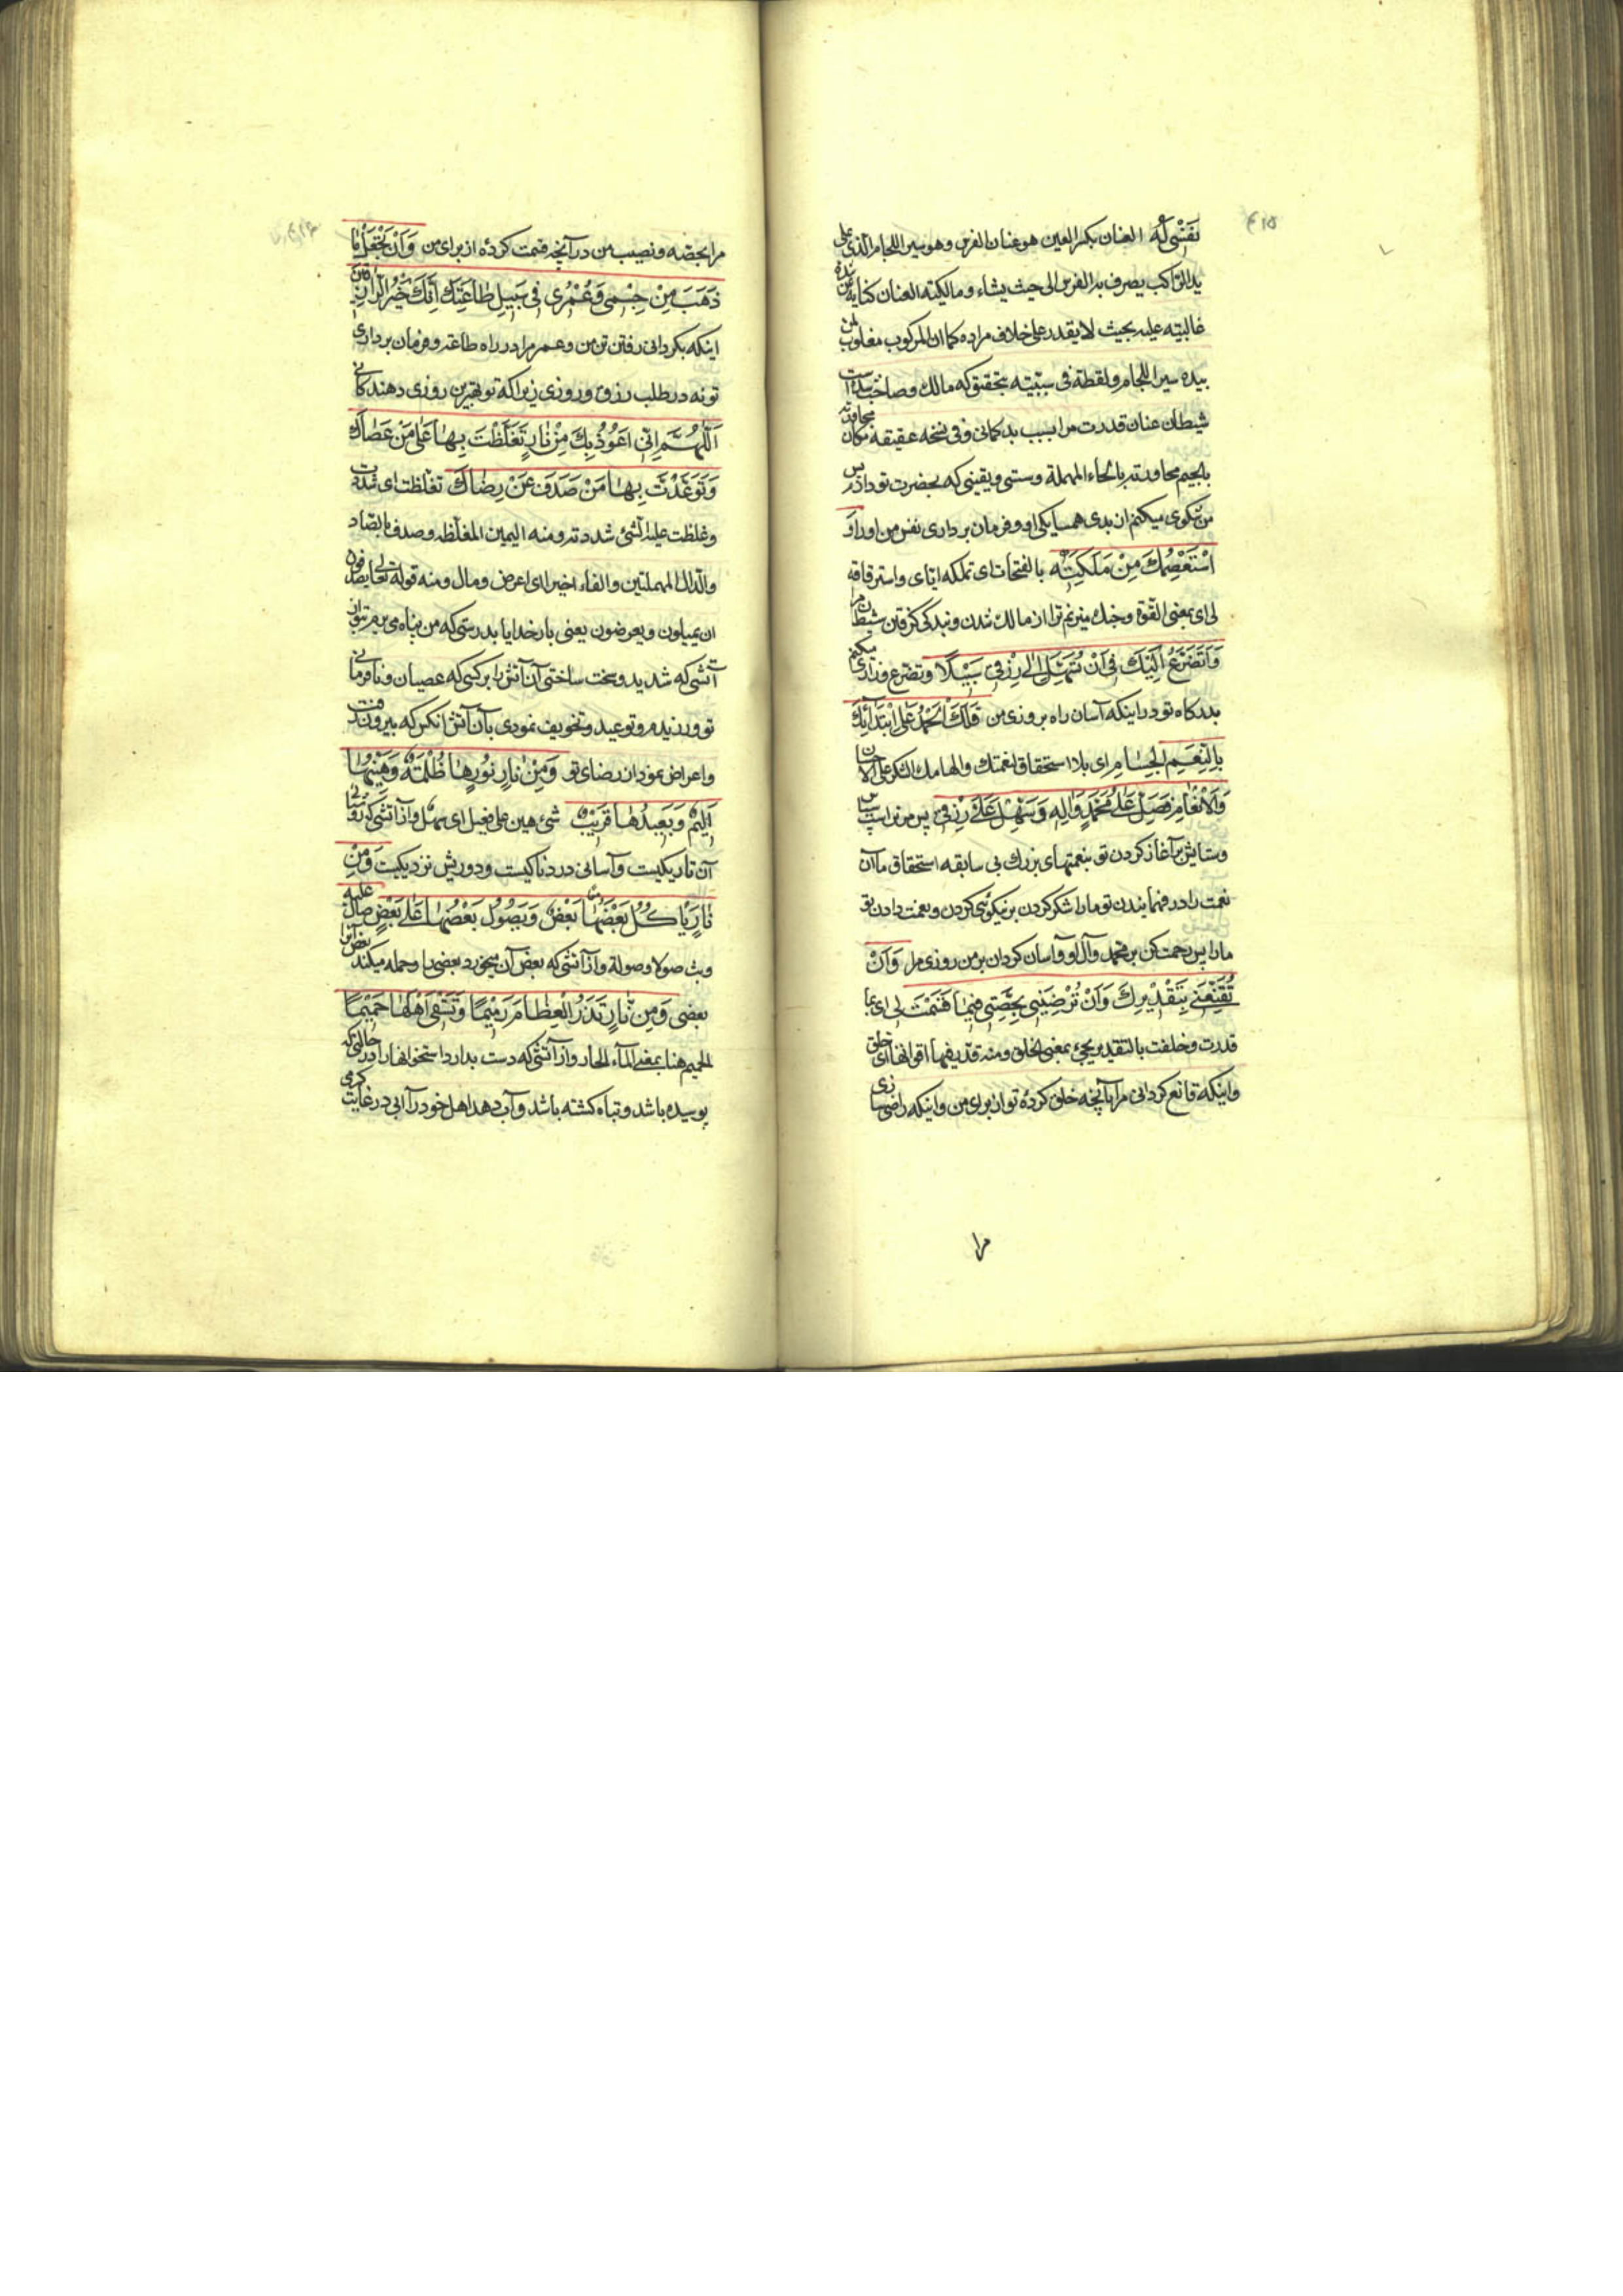 ۴۱۵
نَفْسِی لَهُ العنان بکسر العین هو عنان الفرس وهو سیر اللجام الذی علی
ید الراکب یصرف به الفرس الی حیث یشاء ومالکیته العنان کنایة عن
غالبیته علیه بحیث لا یقدر علی خلاف مراده کما ان المرکوب مغلوب لمن
بیده سیر اللجام ولفظة فی سببیته بتحقیق که مالک وصاحب شده است
شیطان عنان قدرت مرا بسبب بدگمانی وفی نسخه عقیقه مکان مجاورته
بالجیم محاورته بالحاء المهملة وسستی ویقینی که بحضرت تو دادرس
من شکوی میکنم از بدی همسایکی او وفرمان برداری نفس من او را وَ
اَسْتَعْصِمُكَ مِنْ مَلَكَتِهِ بالفتحات ای تملکه ایای واسترقاقه
لی ای بمعنی القوة وچنک میزنم ترا از مالک شدن وبندکی کرفتن شیطان مرا
وَاَتَضَرَّعُ اِلَيْكَ فِی اَنْ تُسَهِّلَ اِلٰی رِزْقِی سَبِيْلًا وتضرع وزاری میکنم
بدرکاه تو در اینکه آسان راه بروزی من فَلَكَ الْحَمْدُ عَلَی ابْتِدَائِكَ
بِالنِّعَمِ الْجِسَامِ ای بلا استحقاق لنعمتک وَاِلْهَامِكَ الشُّكْرَ عَلَی الْاِحْسَانِ
وَالْاِنْعَامِ فَصَلِّ عَلٰی مُحَمَّدٍ وَاٰلِهِ وَسَهِّلْ عَلَیَّ رِزْقِی پس مر تراست سپاس
وستایش بر آغاز کردن تو بنعمتهای بزرك بی سابقه استحقاق ما آن
نعمت را در فهمانیدن تو ما را شکر کردن بر نیکوئی کردن ونعمت دادن تو
ما را پس رحمت کن بر محمد وآل او وآسان کردان بر من روزی مرا وَاَنْ
تُقَنِّعَنِی بِتَقْدِيْرِكَ وَاَنْ تُرْضِيَنِی بِحِصَّتِی فِيْمَا قَسَمْتَ لِی ای بما
قدرت وخلقت بالتقدیر یجیء بمعنی الخلق ومنه قدّر فیها اقواتها ای خلق
واینکه قانع کردانی مرا بآنچه خلق کردهٔ تو از برای من واینکه راضی سازی
مرا
مرا بحصه ونصیب من در آنچه قسمت کردهٔ از برای من وَاَنْ تَجْعَلَ مَا
ذَهَبَ مِنْ جِسْمِی وَعُمْرِی فِی سَبِيْلِ طَاعَتِكَ اِنَّكَ خَيْرُ الرَّازِقِيْنَ
اینکه بکردانی رفتن تن من وعمر مرا در راه طاعت وفرمان برداری
تو نه در طلب رزق وروزی زیرا که تو بهترین روزی دهندکانی
اَللّٰهُمَّ اِنِّی اَعُوْذُ بِكَ مِنْ نَارٍ تَغَلَّظْتَ بِهَا عَلٰی مَنْ عَصَاكَ
وَتَوَعَّدْتَ بِهَا مَنْ صَدَفَ عَنْ رِضَاكَ تغلظت ای شددت
وغلظت علیه الشئ شددته ومنه الیمین المغلظه وصدف بالصاد
والدال المهملتین والفاء اخیرا ای اعرض ومال ومنه قوله تعالی یصدفون
ای یمیلون ویعرضون یعنی بار خدایا بدرستی که من پناه می برم بتو از
آتشی که شدید وسخت ساختی آن آتش را بر کسی که عصیان ونافرمانی
تو ورزیدم وتوعید وتخویف نمودی بآن آتش آنکس که بیرون رفت
واعراض نمود از رضای تو وَمِنْ نَارٍ نُوْرُهَا ظُلْمَةٌ وَهَيِّنُهَا
اَلِيْمٌ وَبَعِيْدُهَا قَرِيْبٌ شئ هین علی فیعل ای سهل واز آتشی که روشنائی
آن تاریکیست وآسانی دردناکیست ودوریش نزدیکیست وَمِنْ
نَارٍ يَاْكُلُ بَعْضَهَا بَعْضٌ وَيَصُوْلُ بَعْضُهَا عَلٰی بَعْضٍ صال علیه
وثب صولا وصولة واز آتشی که بعض آن میخورد بعضی را وحمله میکند بعض آنرا
بعضی وَمِنْ نَارٍ تَذَرُ الْعِظَامَ رَمِيْمًا وَتَسْقِی اَهْلَهَا حَمِيْمًا
الحمیم هنا بمعنی المآء الحار واز آتشی که دست بدارد استخوانها را در حالتی که
پوسیده باشد وتباه کشته باشد وآب دهد اهل خود را آبی در غایت کرمی